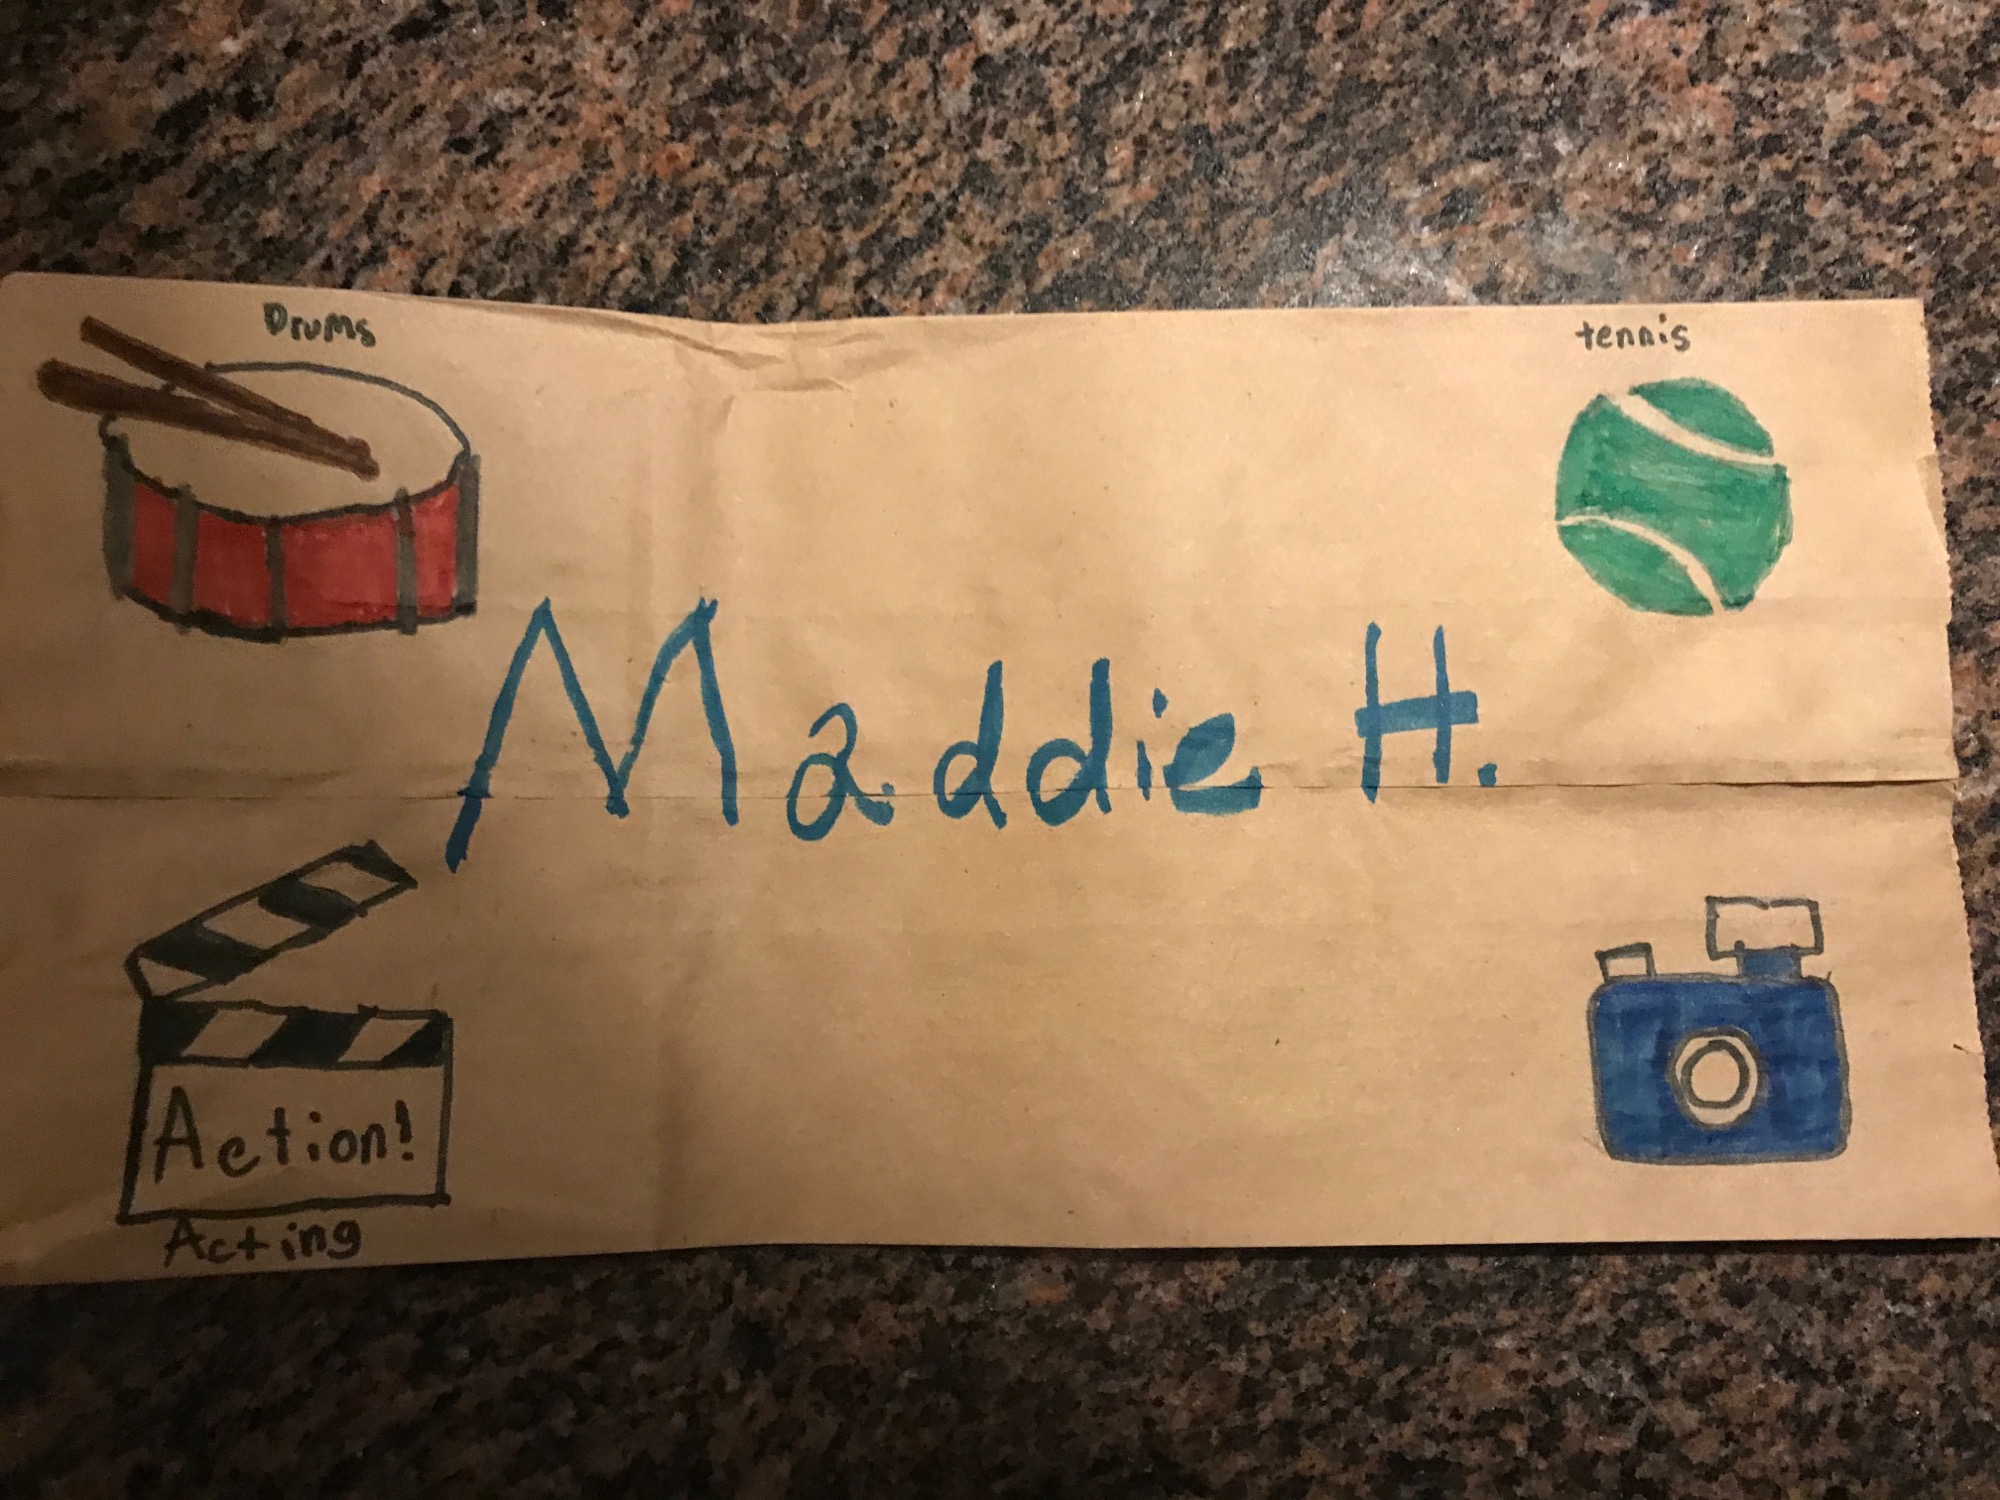 Drums
tennis
Maddie H.
Action!
Acting